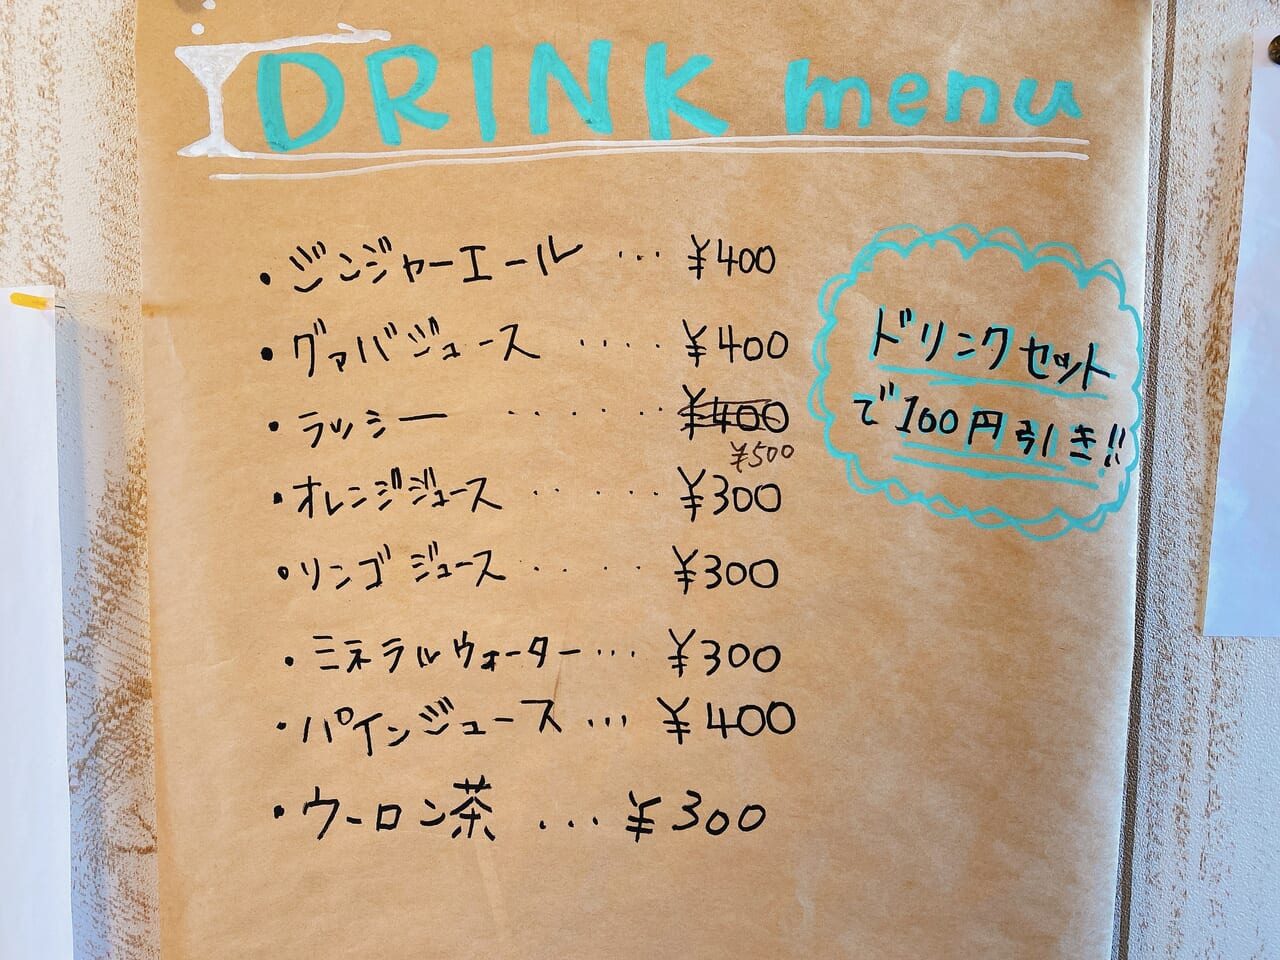 DRINK menu
・ジンジャーエール … ¥400
・グァバジュース ‥‥ ¥400
・ラッシー ‥‥‥ ¥400
¥500
・オレンジジュース ‥‥‥ ¥300
・リンゴジュース ‥‥ ¥300
・ミネラルウォーター … ¥300
・パインジュース … ¥400
・ウーロン茶 … ¥300
ドリンクセット
で100円引き!!